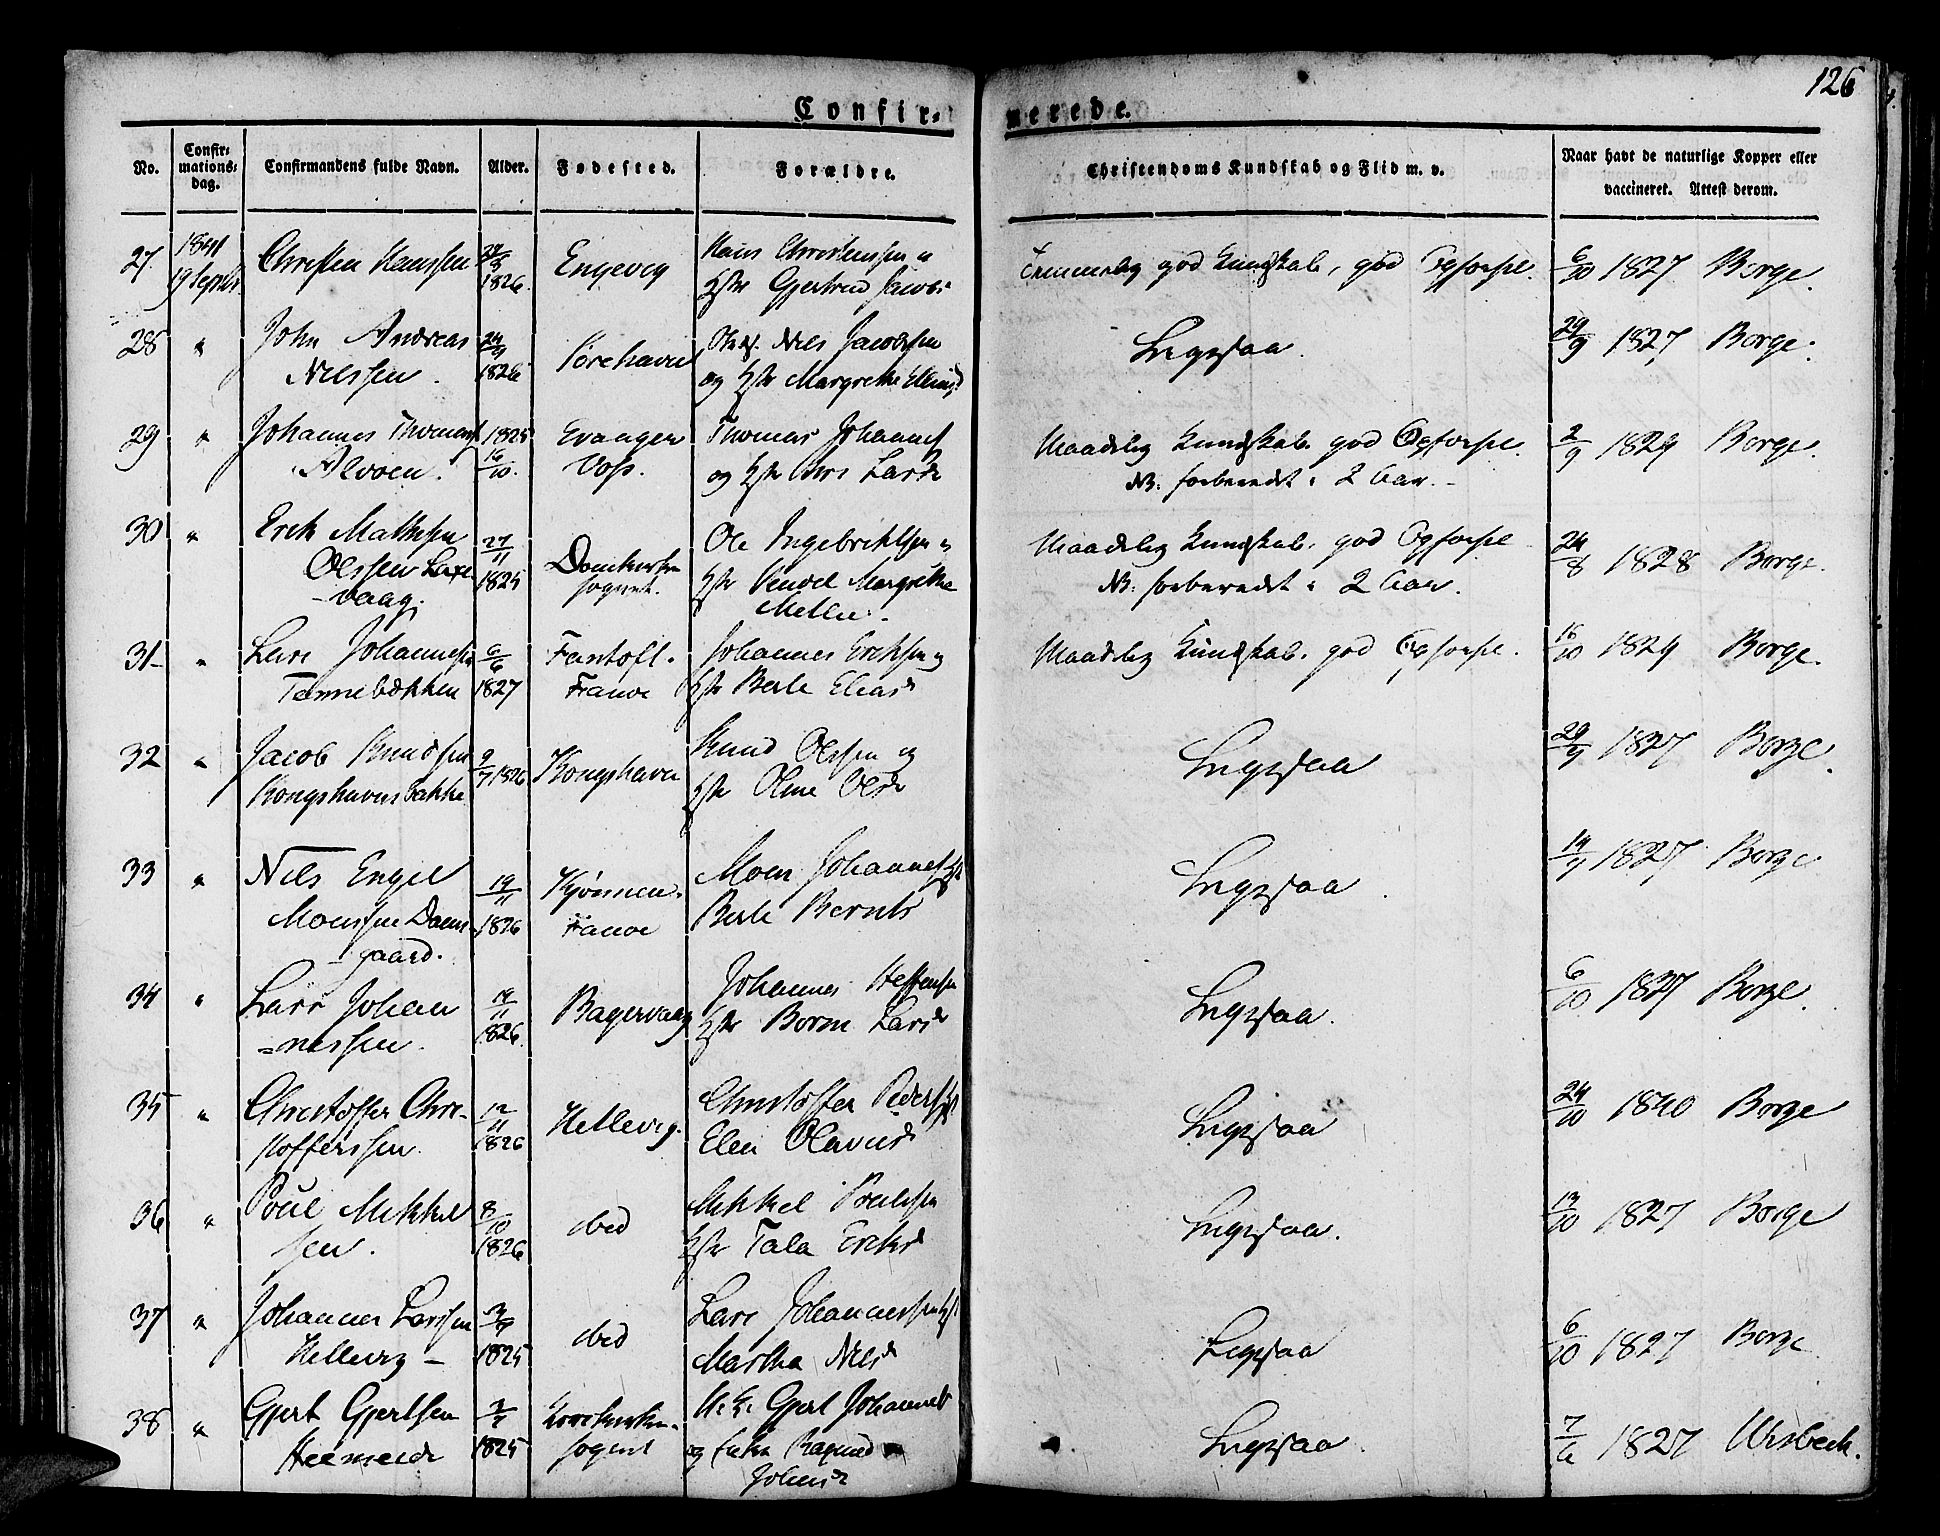 126
Confir-
merede.
No.
Confir-
mations-
dag.
Confirmandens fulde Navn.
Alder.
Fødested.
Forældre.
Christendoms Kundskab og Flid m. v.
Naar havt de naturlige Kopper eller
vaccineret. Attest derom.
27 1841 19 Septbr. Christen Hanssen 1826 Engevig
Hans Christenssen og
Hstr Gjertrud Jacobs
Temmelig god Kundskab, god Opførsel. 6/10 1827 Borge.
28 " John Andreas
Nilssen. 24/9 1826
Nils Jacobssen
og Hstr Margrethe
Ligesaa. 29/9 1827 Borge.
29 " Johannes Thomass
Alvøen. 1825 16/10.
Evanger
Voss.
Thomas Johannes
og Hstr Larsd
Maadelig Kundskab. god Opførsel.
NB: forberedt i 2 Aar.
2/9 1829 Borge.
30 " Erik Mathssen
Olssen Laxe-
vaag. 27/11 1825
Domkirke
sognet.
Ole Ingebrictssen og
Hstr Vendel Margrethe
Maadelig Kundskab, god Opførsel
NB: forberedt i 2 Aar.
24/8 1828 Borge.
31 " Lars Johannessen
Tennebækken 6/6 1827
Fantoft.
Fanøe
Johannes Erikssen og
Hstr Berte Eliasd
Maadelig Kundskab. god Opførsel.
16/10 1829 Borge.
32 " Jacob Knudssen
Kongshavns bakke 9/7 1826 Kongshavn
Knud Olssen og
Hstr Olsd
Ligesaa 29/9 1827 Borge.
33 " Nils Engel
Monssen Dams-
gaard. 19/11 1826
Fanøe
Mons Johannes Hstr
Berte Bernts
Ligesaa. 1827 Borge
34 " Lars Johan
=nessen. 19/11 1826.
Johannes
Hstr Larsd
Ligesaa. 6/10 1827 Borge.
35 " Christoffer Chri-
stofferssen. 12/11 1826 Hellevig.
Christoffer Peders Hstr
Elen Olavusd
Ligesaa 24/10 1840 Borge
36 " Poul Mikkel
sen. 8/10 1826 ibid
Mikkel Poulssen
Hstr Tala Eriksd
Ligesaa. 13/10 1827 Borge
37 " Johannes Larssen
Hellevig - 3/9 1825 ibid
Lars Johannessen Hstr
Martha Nilsd
Ligesaa 6/10 1827 Borge
38 " Gjert Gjertsen
1825 Korskirke-
sognet
Gjert Johannes
og Ragnild
Johansd
Ligesaa. 7/6 1827 Wisbech.